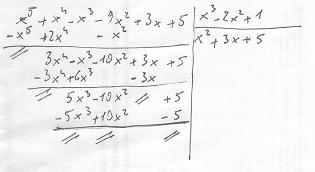 x⁵ + x⁴ - x³ - 9x² + 3x + 5 | x³ - 2x² + 1
- x⁵ + 2x⁴ - x² | x² + 3x + 5
3x⁴ - x³ - 10x² + 3x + 5
- 3x⁴ + 6x³ - 3x
5x³ - 10x² // + 5
- 5x³ + 10x² - 5
// // //